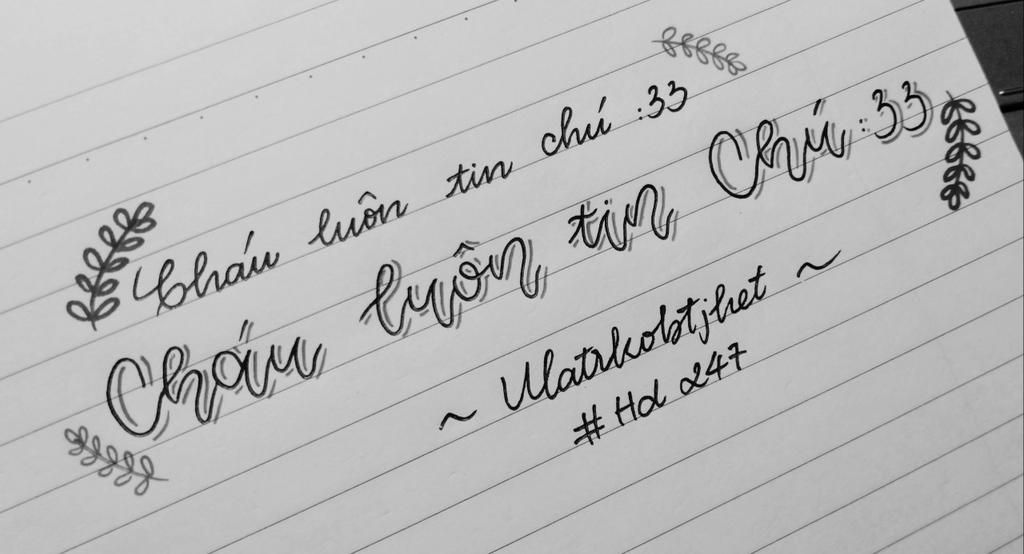 Cháu luôn tin chú :33
Cháu luôn tin Chú :33
~ Matrkobtjhet ~
# Hd 247